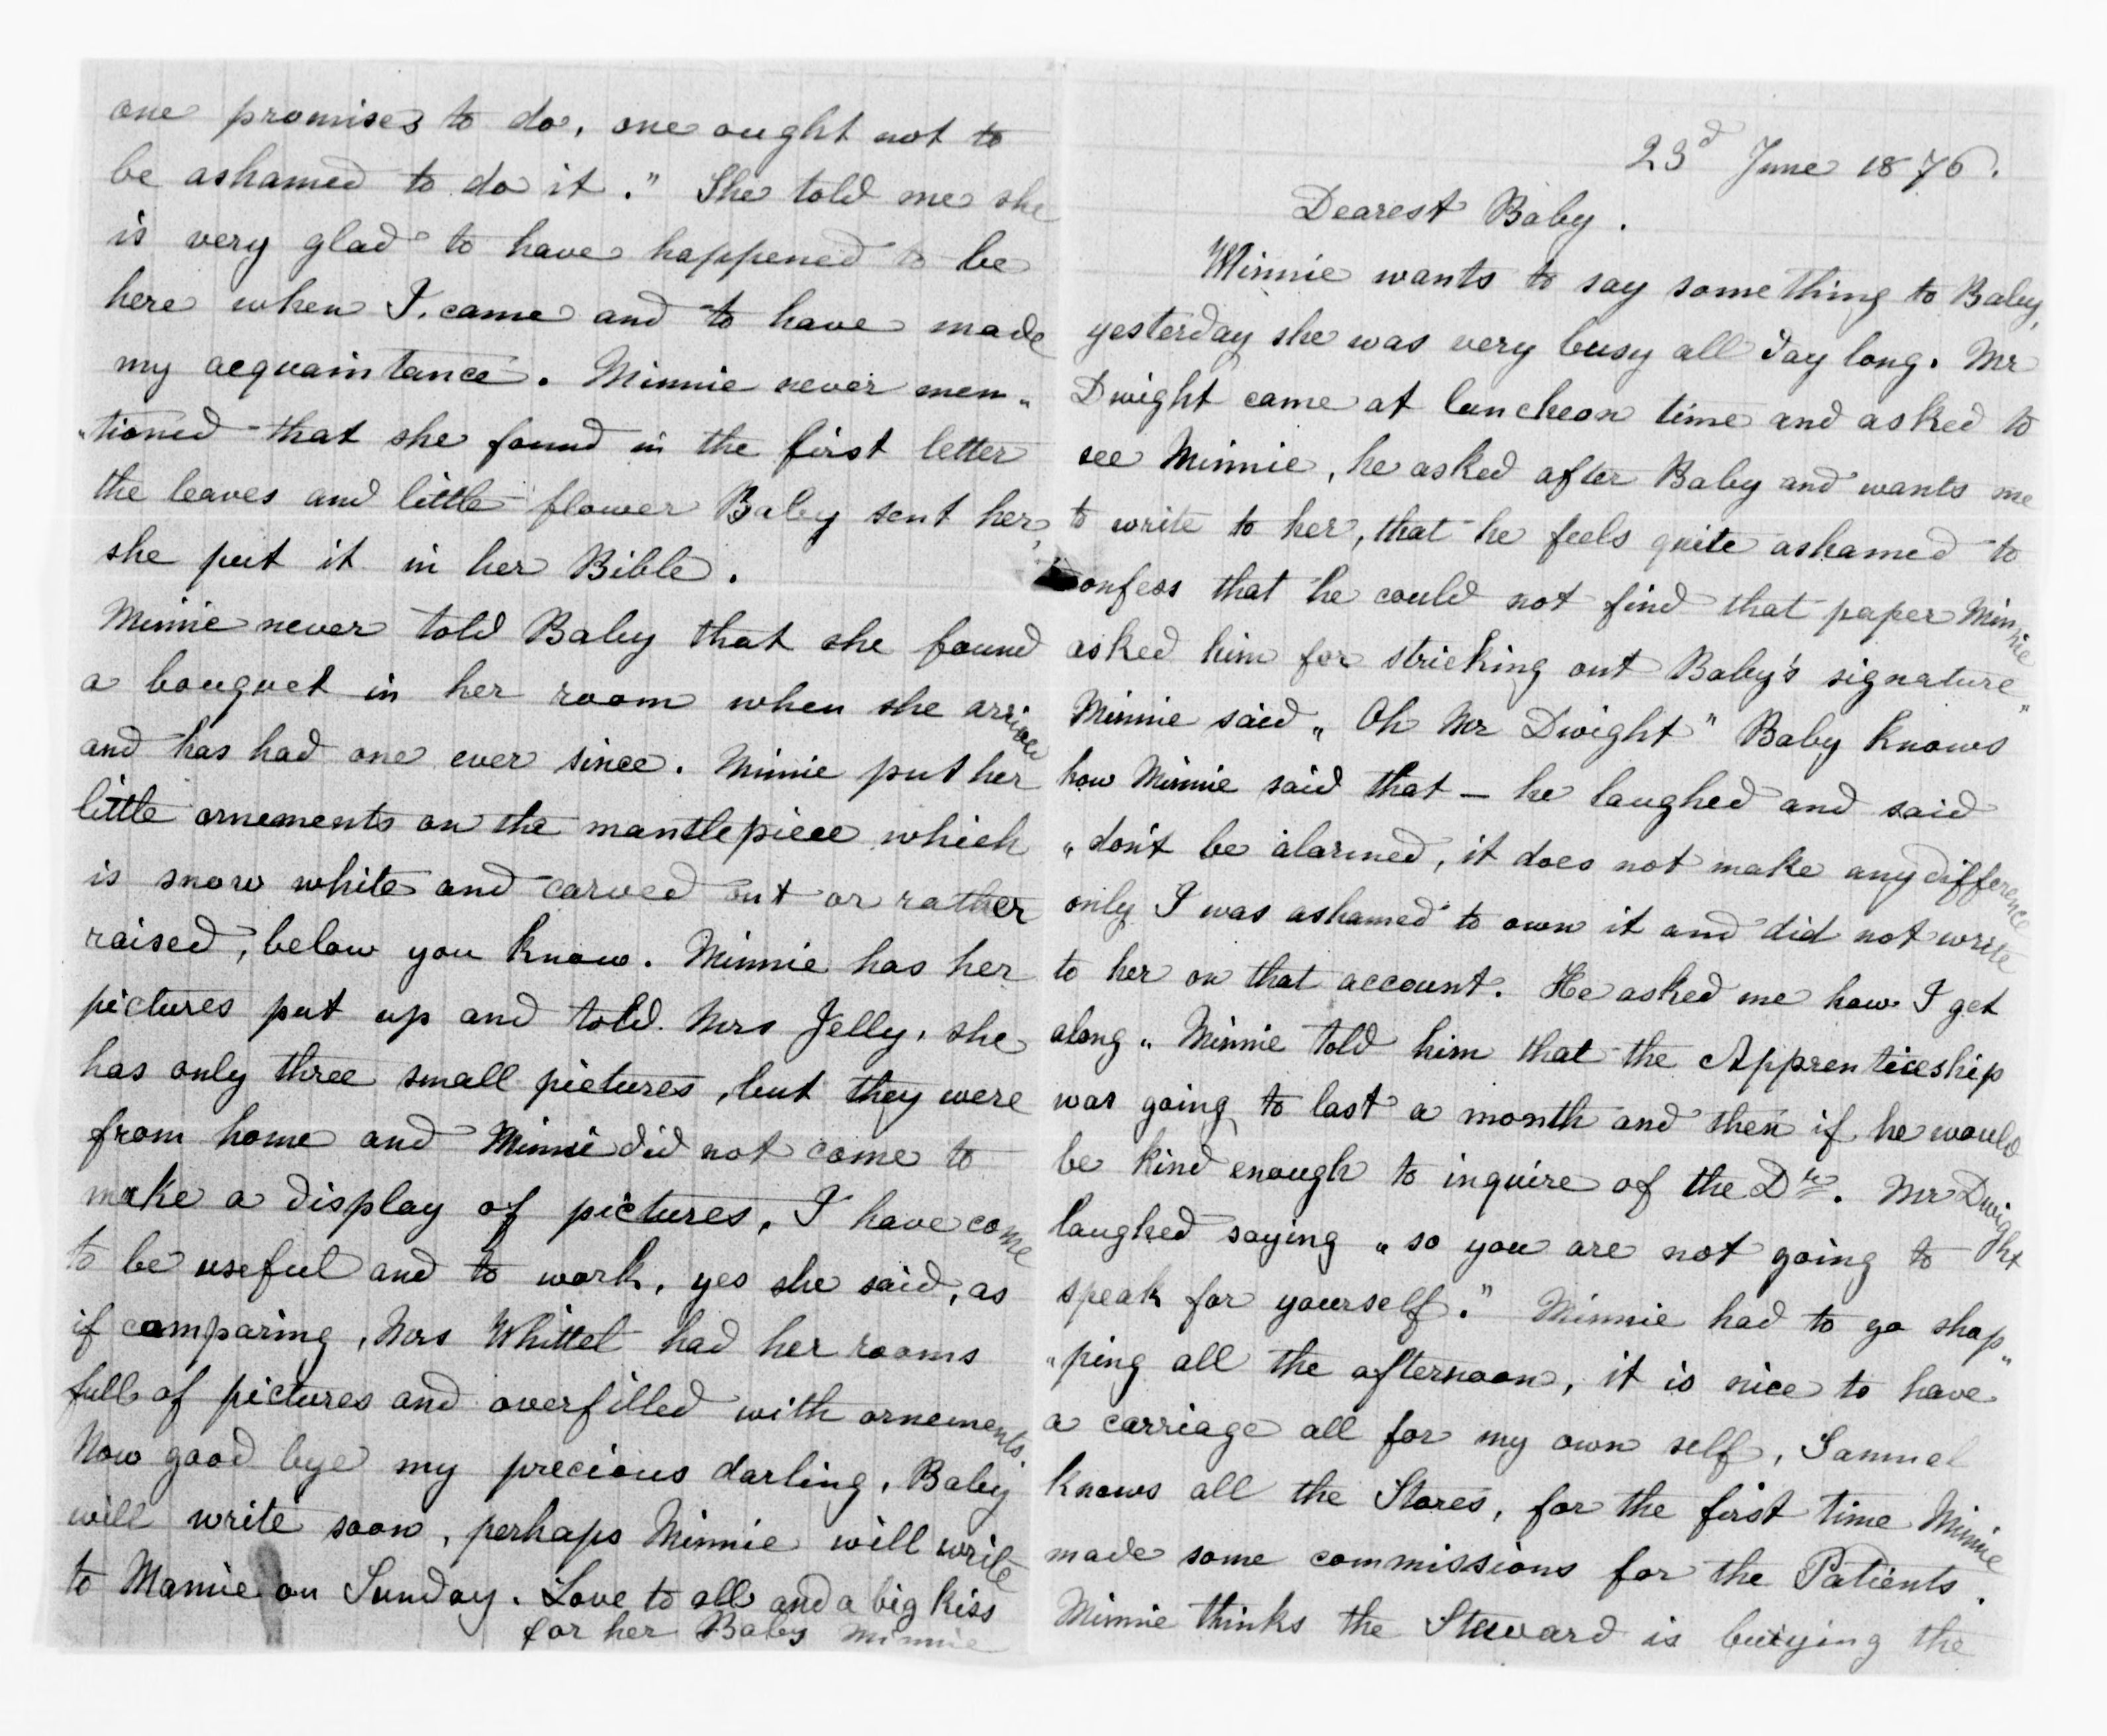 23d June 1876.
Dearest Baby.
Minnie wants to say something to Baby,
yesterday she was very busy all day long. Mr
Dwight came at luncheon time and asked to
see Minnie, he asked after Baby and wants me
to write to her, that he feels quite ashamed to
confess that he could not find that paper Minnie
asked him for stricking out Baby's signature"
Minnie said „ Oh Mr Dwight" Baby knows
how Minnie said that — he laughed and said
„don't be alarmed, it does not make any difference
only I was ashamed to own it and did not write
to her on that account. He asked me how I get
along „ Minnie told him that the Apprenticeship
was going to last a month and then if he would
be kind enough to inquire of the Drs. Mr Dwight
laughed saying „so you are not going to
speak for yourself." Minnie had to go shop„
„ping all the afternoon, it is nice to have
a carriage all for my own self, Samuel
knows all the Stores, for the first time Minnie
made some commissions for the Patients.
Minnie thinks the Steward is buiying the
one promises to do, one ought not to
be ashamed to do it." She told me she
is very glad to have happened to be
here when I came and to have made
my acquaintance. Minnie never men„
„tioned that she found in the first letter
the leaves and little flower Baby sent her,
she put it in her Bible.
Minnie never told Baby that she found
a bouquet in her room when she arrived
and has had one ever since. Minnie put her
little ornements on the mantlepiece which
is snow white and carved out or rather
raised, below you know. Minnie has her
pictures put up and told Mrs Jelly, she
has only three small pictures, but they were
from home and Minnie did not come to
make a display of pictures, I have come
to be useful and to work, yes she said, as
if comparing, Mrs Whittel had her rooms
full of pictures and overfilled with ornements.
Now good bye my precious darling, Baby
will write soon, perhaps Minnie will write
to Mamie on Sunday. Love to all and a big kiss
for her Baby Minnie